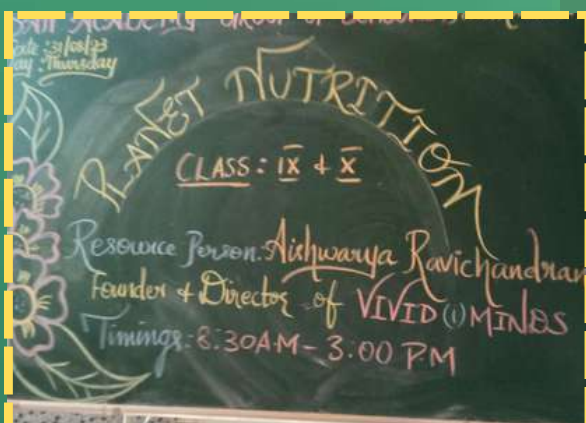 ACADEMY GROUP OF
Date: 31/08/23
Day: Thursday
PLANET NUTRITION
CLASS: IX + X
Resource Person: Aishwarya Ravichandran
Founder + Director of VIVID (i) MINDS
Timings: 8:30AM - 3:00 P.M